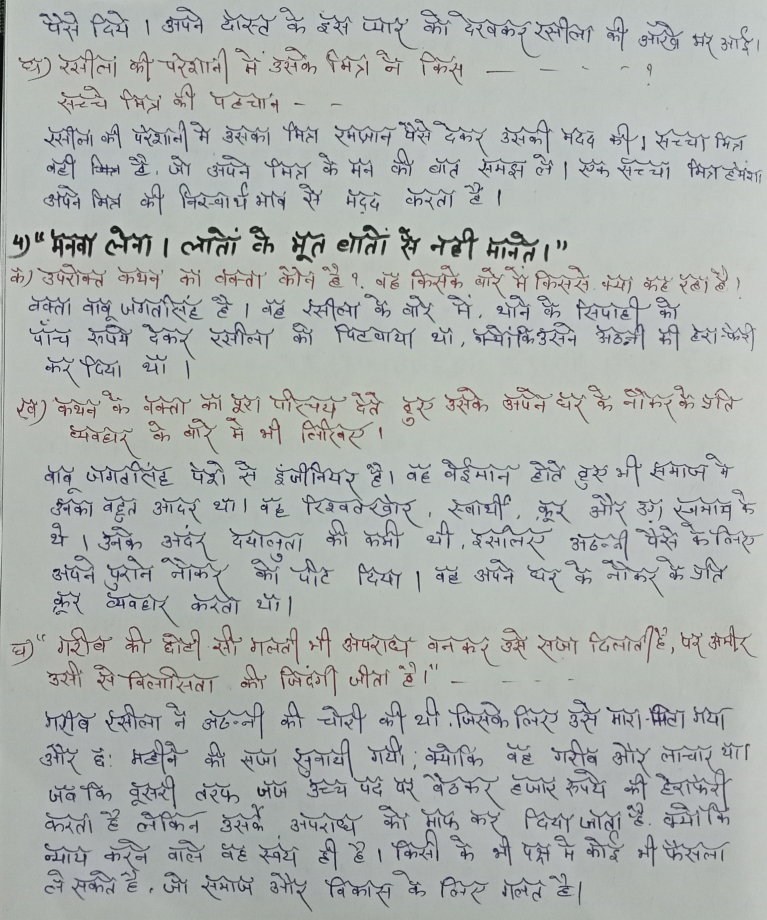 पैसे दिये । अपने दोस्त के इस प्यार को देखकर रसीला की आँखे भर आई।
घ) रसीला की परेशानी में उसके मित्र ने किस — — - - - ?
सच्चे मित्र की पहचान - -
रसीला की परेशानी मे उसका मित्र रमजान पैसे देकर उसकी मदद की । सच्चा मित्र
वही है, जो अपने मित्र के मन की बात समझ ले । एक सच्चा मित्र हमेशा
अपने मित्र की निस्वार्थ भाव से मदद करता है ।
4) "मनवा लेना । लातों के भूत बातों से नही मानते।"
क) उपरोक्त कथन का वक्ता कौन है ?. वह किसके बारे में किससे क्या कह रहा है ।
वक्ता बाबू जगतसिंह है । वह रसीला के बारे में, थाने के सिपाही को
पाँच रूपये देकर रसीला को पिटवाया था, क्योंकि उसने अठन्नी की हेरा-फेरी
कर दिया था ।
ख) कथन के वक्ता का पूरा परिचय देते हुए उसके अपने घर के नौकर के प्रति
व्यवहार के बारे में भी लिखिए ।
बाबू जगतसिंह पेशे से इंजीनियर है। वह बेईमान होते हुए भी समाज मे
उनका बहुत आदर था। वह रिश्वतखोर, स्वार्थी, क्रूर और उग्र स्वभाव के
थे । उनके अंदर दयालुता की कमी थी, इसलिए अठन्नी पैसे के लिए
अपने पुराने नौकर को पीट दिया । वह अपने घर के नौकर के प्रति
क्रूर व्यवहार करता था।
घ) "गरीब की छोटी सी गलती भी अपराध बन कर उसे सजा दिलाती है, पर अमीर
उसी से विलासिता की जिंदगी जीता है।" — - - - -
गरीब रसीला ने अठन्नी की चोरी की थी, जिसके लिए उसे मारा-पिटा गया
और छ: महीने की सजा सुनायी गयी; क्योकि वह गरीब और लाचार था।
जब कि दूसरी तरफ जज उच्च पद पर बैठकर हजार रूपये की हेराफेरी
करता है लेकिन उसके अपराध को माफ कर दिया जाता है. क्योकि
न्याय करने वाले वह स्वंय ही है । किसी के भी पक्ष मे कोई भी फैसला
ले सकते है, जो समाज और विकास के लिए गलत है।